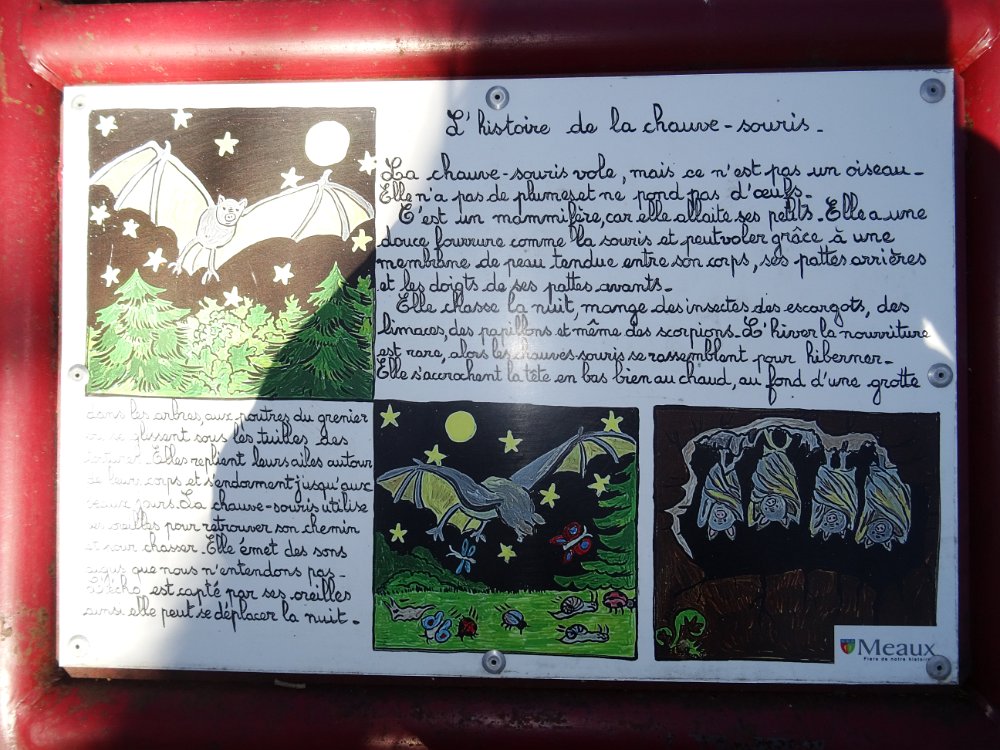 L'histoire de la chauve-souris.
La chauve-souris vole, mais ce n'est pas un oiseau.
Elle n'a pas de plumes et ne pond pas d'œufs.
C'est un mammifère, car elle allaite ses petits. Elle a une
douce fourrure comme la souris et peut voler grâce à une
membrane de peau tendue entre son corps, ses pattes arrières
et les doigts de ses pattes avants.
Elle chasse la nuit, mange des insectes des escargots, des
limaces, des papillons et même des scorpions. L'hiver la nourriture
est rare, alors les chauves-souris se rassemblent pour hiberner.
Elle s'accrochent la tête en bas bien au chaud, au fond d'une grotte
dans les arbres, aux poutres du grenier
se glissent sous les tuilles des
Elles replient leurs ailes autour
de leur corps et s'endorment jusqu'aux
beaux jours. La chauve-souris utilise
ses oreilles pour retrouver son chemin
et pour chasser. Elle émet des sons
aigus que nous n'entendons pas.
L'écho est capté par ses oreilles
ainsi elle peut se déplacer la nuit.
Meaux
Fière de notre histoire